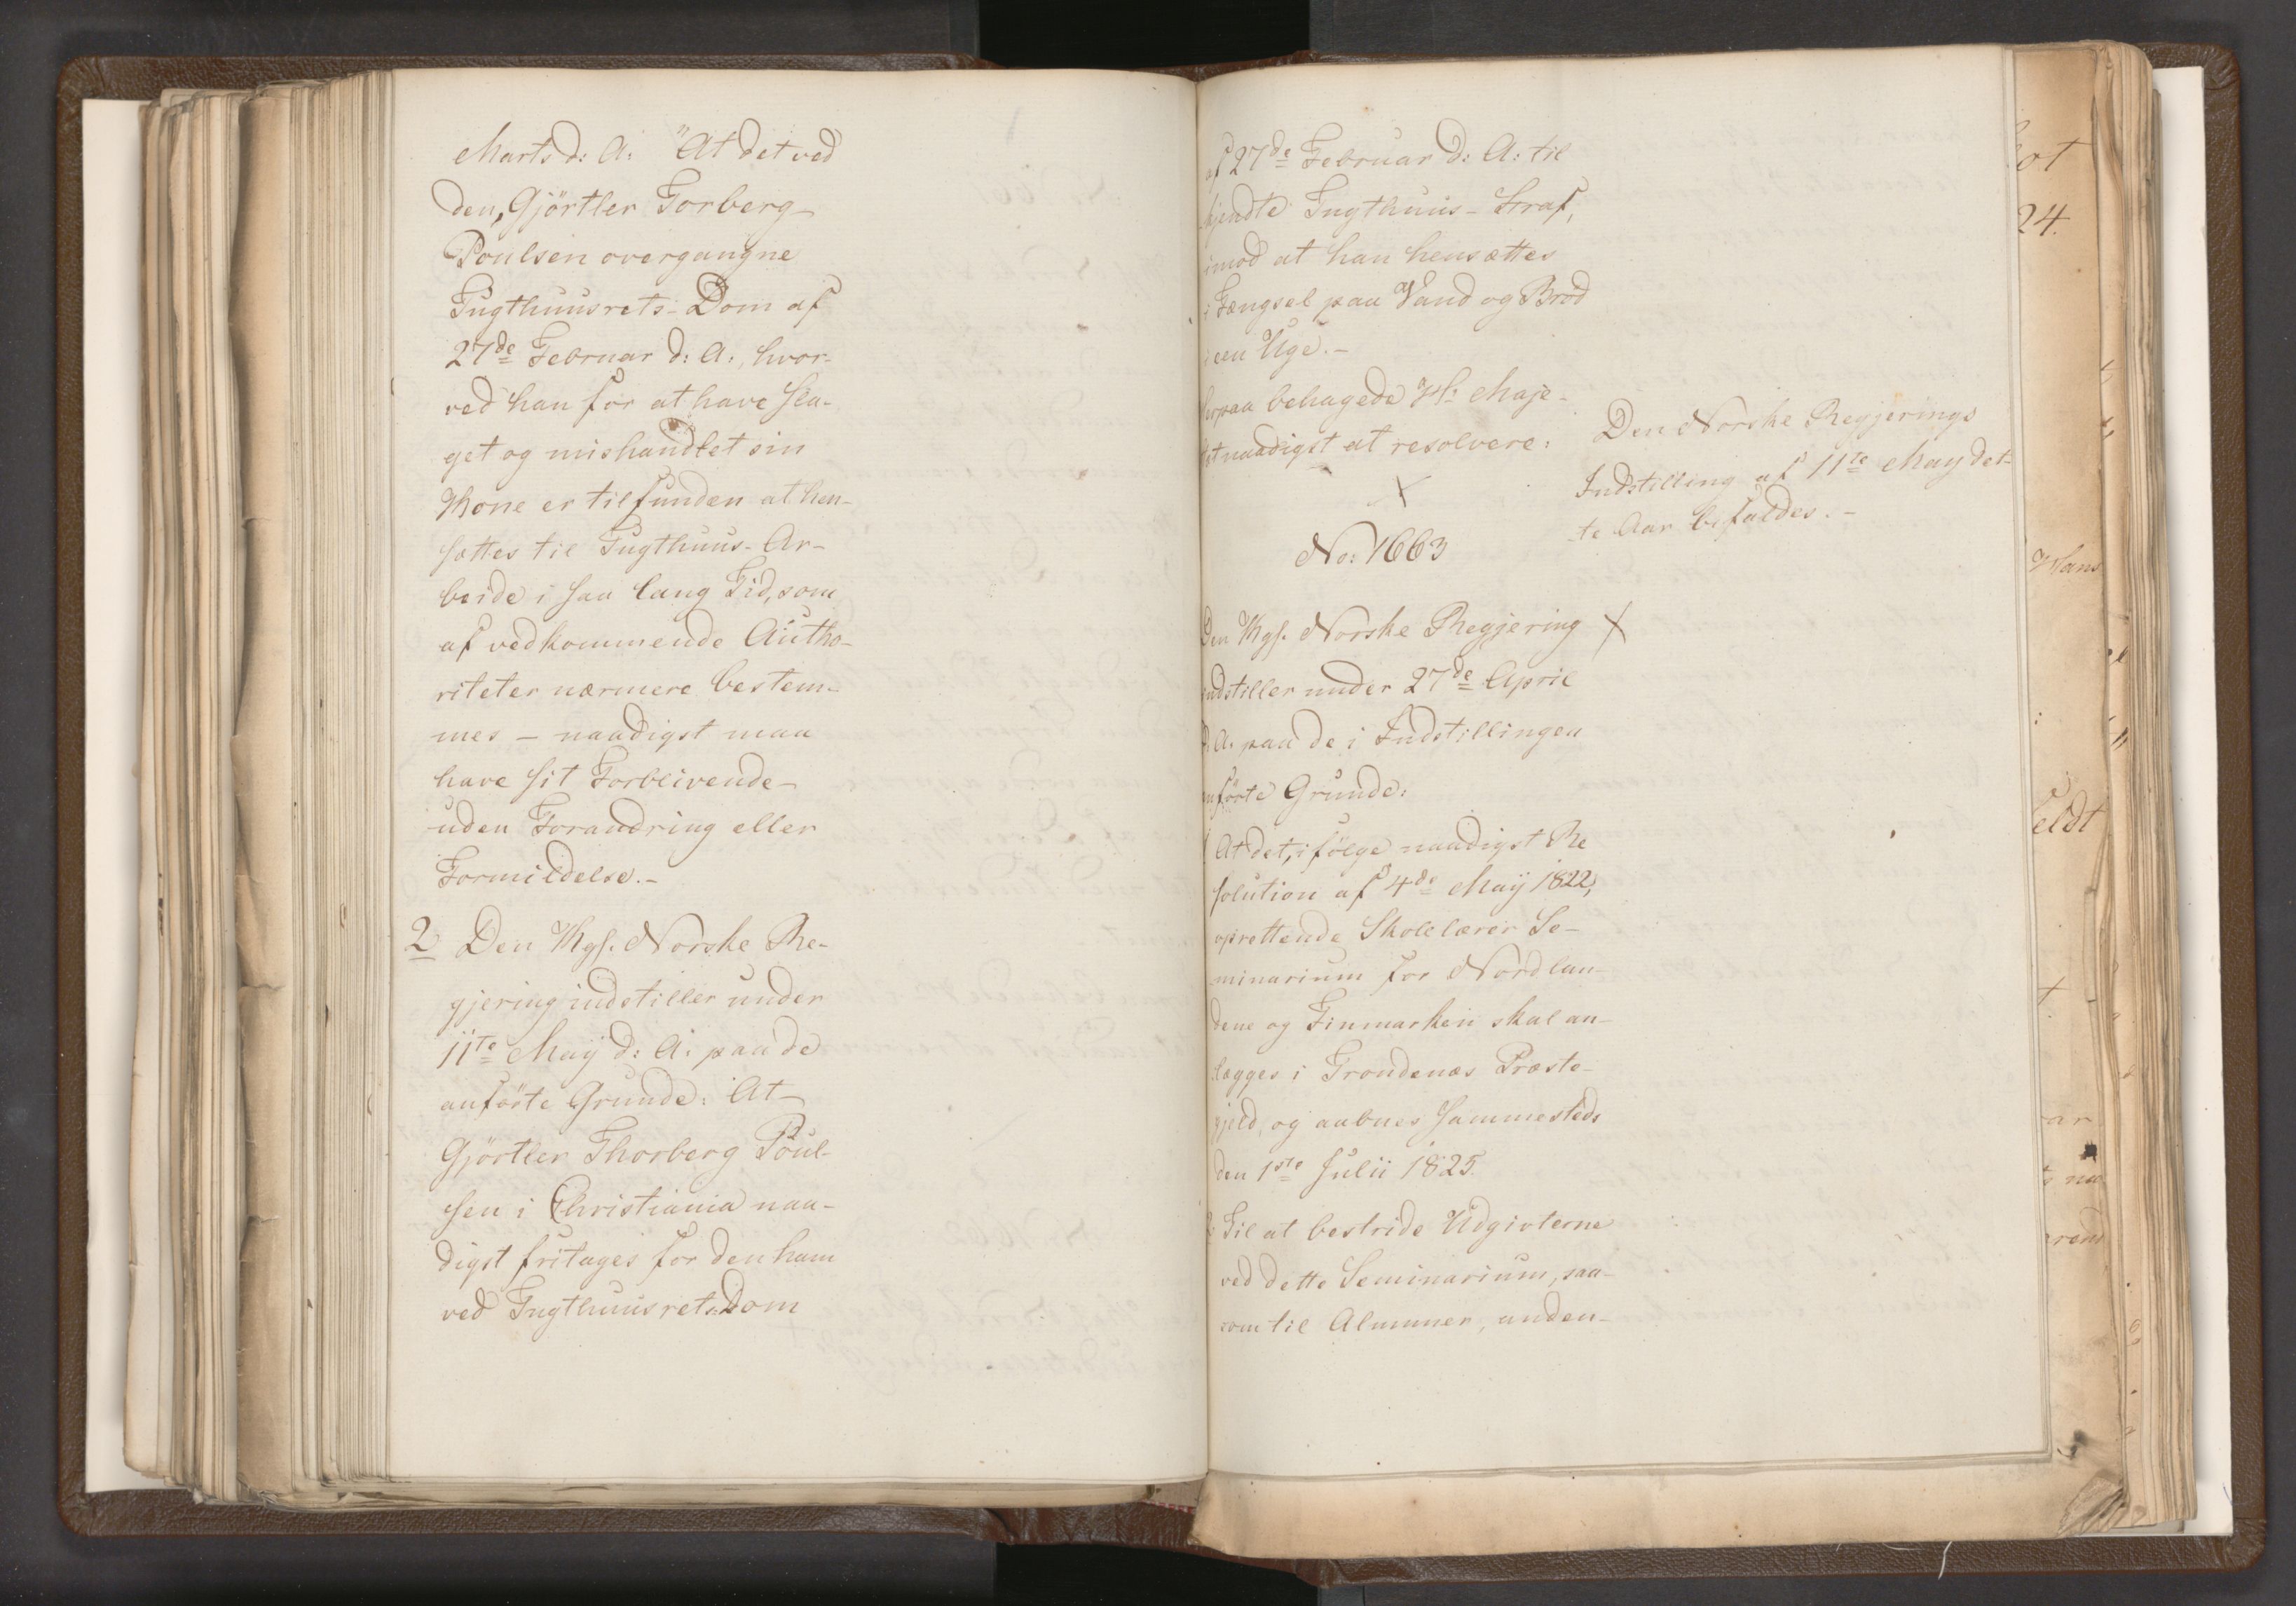 Marts d: A: "At det ved
den, Gjörtler Torberg
Poulsen overgangne
Tugthuusrets-Dom af
27de Februar d: A:, hvor-
ved han for at have sla-
get og mishandlet sin
Kone er tilfunden at hen-
sættes til Tugthuus-Ar-
beide i saa lang Tid, som
af vedkommende Autho-
riteter nærmere bestem-
mes – naadigst maa
have sit Forblivende
uden Forandring eller
Formildelse.-
2 Den Kgs. Norske Re-
gjering indstiller under
11te May d: A: paa de
anførte Grunde: At
Gjörtler Thorberg Poul-
sen i Christiania naa-
digst fritages for den ham
ved Tugthuusrets-Dom
af 27de Februar d: A: til
kjendte Tugthuus-Straf,
imod at han hensættes
i Fængsel paa Vand og Brød
i een Uge.-
behagede H: Maje-
naadigst at resolvere:
Den Norske Regjerings
Indstilling af 11te May det-
te Aar bifaldes.-
No: 1663
Den Kgs. Norske Regjering
indstiller under 27de April
d: A. paa de i Indstillingen
anførte Grunde:
At det, ifölge naadigst Re
solution af 4de May 1822,
oprettende Skolelærer Se-
minarium for Nordlan-
dene og Finmarken skal an-
lægges i Trondenæs Præste-
gjeld, og aabnes sammesteds
den 1ste Julii 1825.
Til at bestride Udgivterne
ved dette Seminarium, saa-
som til Alumner, unden-
ot
24.
Hans
eldt